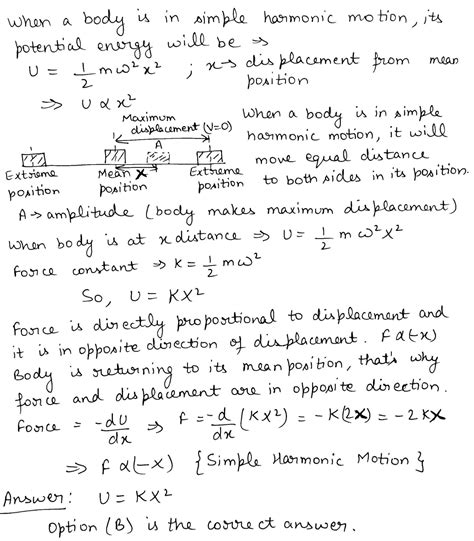 When a body is in simple harmonic motion, its
potential energy will be ⇒
U = 1/2 mω²x² ; x→ displacement from mean
position
⇒ U ∝ x²
Maximum
displacement (V=0)
A
Extreme
position
Mean
position
x
Extreme
position
When a body is in simple
harmonic motion, it will
move equal distance
to both sides in its position.
A→ amplitude (body makes maximum displacement)
When body is at x distance ⇒ U = 1/2 m ω²x²
Force constant ⇒ K = 1/2 mω²
So, U = KX²
Force is directly proportional to displacement and
it is in opposite direction of displacement. F ∝ (-x)
Body is returning to its mean position, that's why
force and displacement are in opposite direction.
Force = -dU/dx ⇒ F = -d/dx (KX²) = -K(2X) = -2KX
⇒ F ∝ (-X) {Simple Harmonic Motion}
Answer: U = KX²
Option (B) is the correct answer.